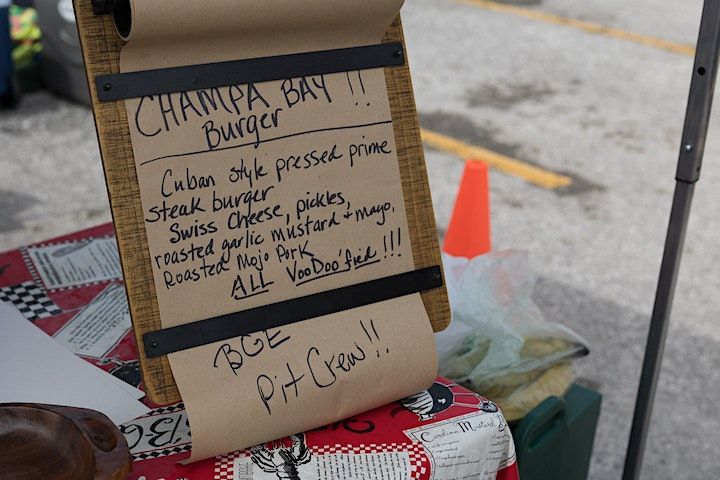 CHAMPA BAY !!
Burger
Cuban style pressed prime
steak burger
Swiss Cheese, pickles,
roasted garlic mustard + mayo,
Roasted Mojo Pork
ALL VooDoo'fied!!!
BGE
Pit Crew!!
Carolina Mustard